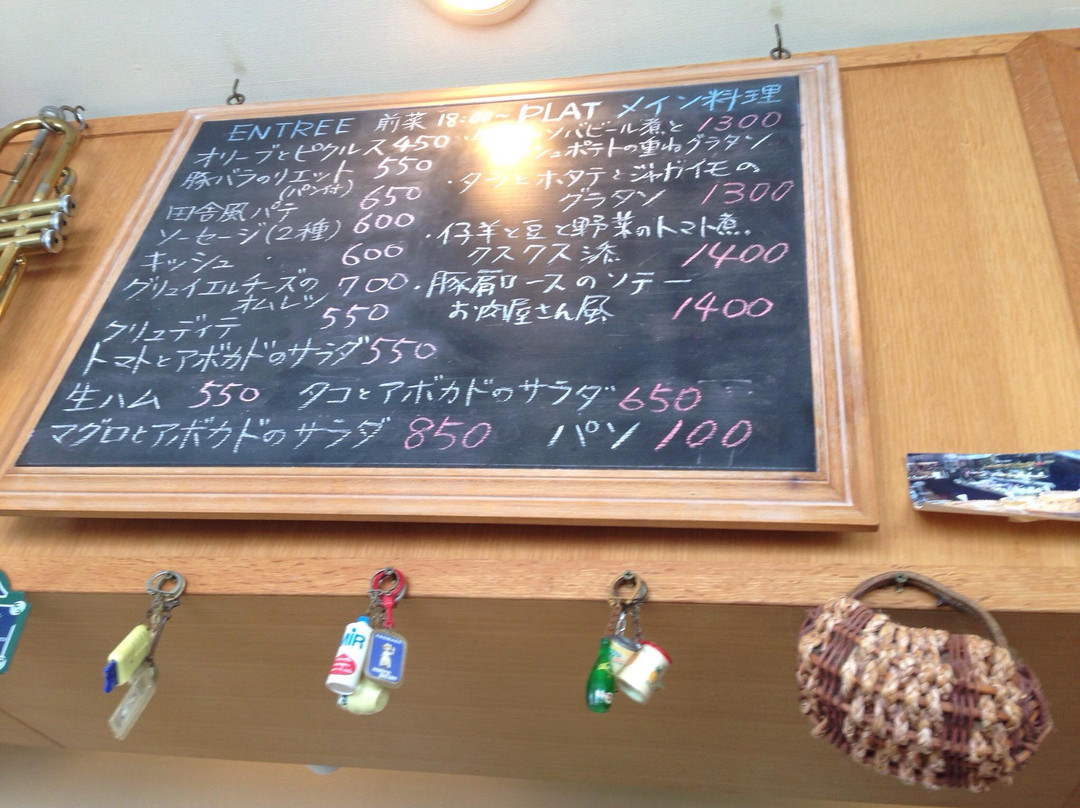 ENTREE 前菜 18:00~
オリーブとピクルス 450
豚バラのリエット 550
(パン付)
田舎風パテ 650
ソーセージ(2種) 600
キッシュ 600
グリュイエルチーズの 700
オムレツ
クリュディテ 550
トマトとアボカドのサラダ 550
生ハム 550
タコとアボカドのサラダ 650
マグロとアボカドのサラダ 850
パン 100
PLAT メイン料理
ビール煮と 1300
ポテトの重ねグラタン
・タラとホタテとジャガイモの
グラタン 1300
・仔羊と豆と野菜のトマト煮.
クスクス添 1400
・豚肩ロースのソテー
お肉屋さん風 1400
MIR